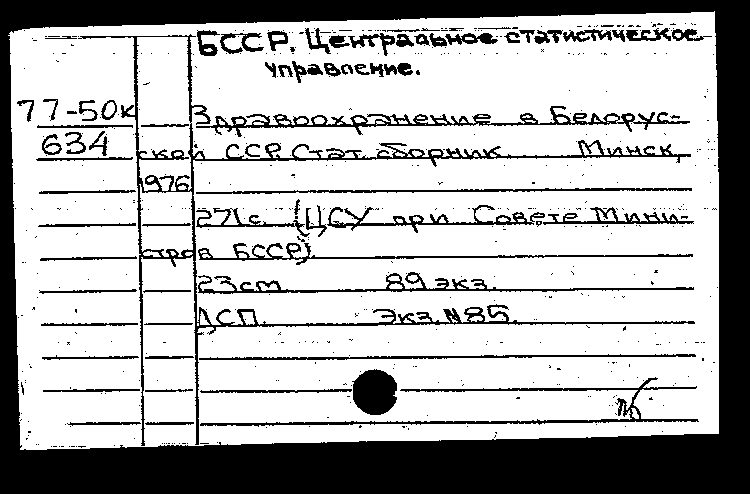 БССР. Центральное статистическое
управление.
77-50к Здравоохранение в Белорус-
634 ской ССР. Стат. сборник. Минск,
1976
271 с. (ЦСУ при Совете Мини-
стров БССР).
23 см 89 экз.
ДСП. Экз. № 85.